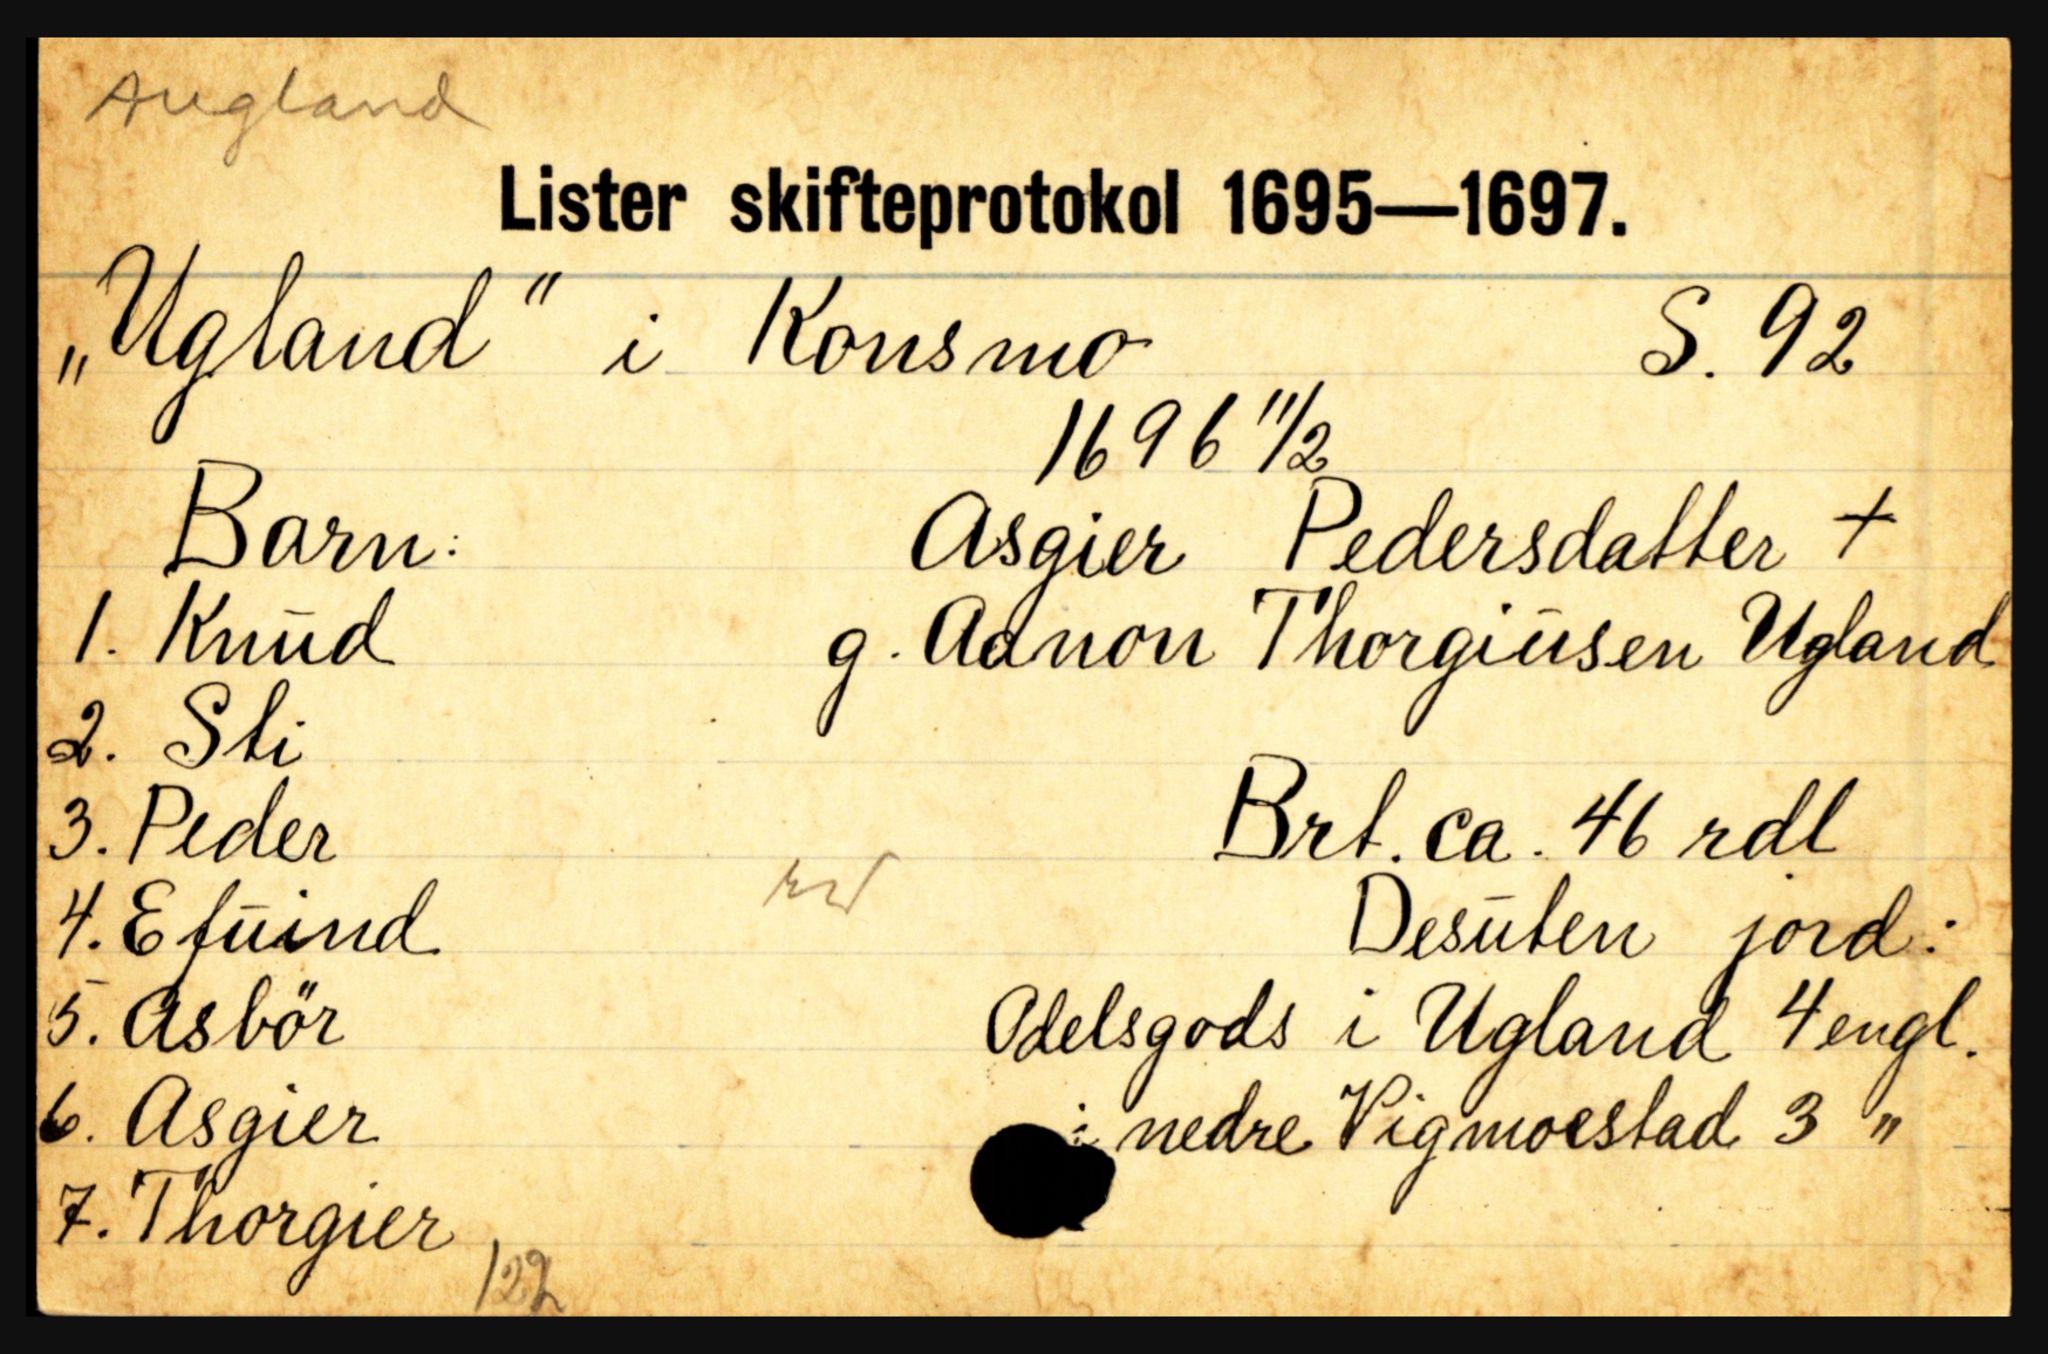 Augland
Lister skifteprotokol 1695—1697.
„Ugland" i Konsmo S. 92
1696 11/2
Barn: Asgier Pedersdatter +
1. Knud g. Aanon Thorgiusen Ugland
2. Sti
3. Peder Brt. ca. 46 rdl
4. Efuind Desuten jord:
5. Asbör Odelsgods i Ugland 4 engl.
6. Asgier i nedre Vigmoestad 3 "
7. Thorgier
122